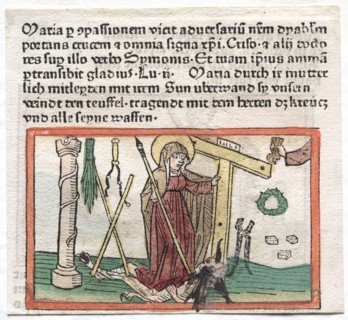 Maria ꝑ ꝯpassionem vicit aduersariū nr̄m dyabolm
portans crucem ⁊ omnia signa xp̄i. Cuso. ⁊ alij docto
res suꝑ illo verbo Symonis. Et tuam ip̄ius animā
ꝑtransibit gladius. Lu. ii. Maria durch ir mutter
lich mitleyden mit irem Sun uberwand sy unsern
veindt den teuffel. tragendt mit dem herren dz kreücz
und alle seyne waffen.